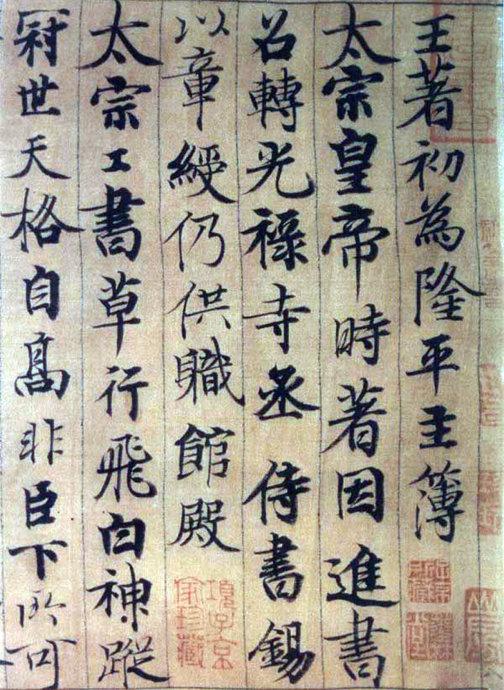 王著初為隆平主簿
太宗皇帝時著因進書
召轉光祿寺丞侍書錫
以章綬仍供職館殿
太宗工書草行飛白神蹤
冠世天格自高非臣下所可
項子京
家珍藏